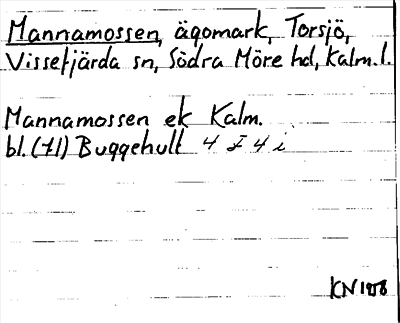 Mannamossen, ägomark, Torsjö,
Vissefjärda sn, Södra Möre hd, Kalm. l.
Mannamossen ek Kalm.
bl. (71) Buggehult 4 F 4 i